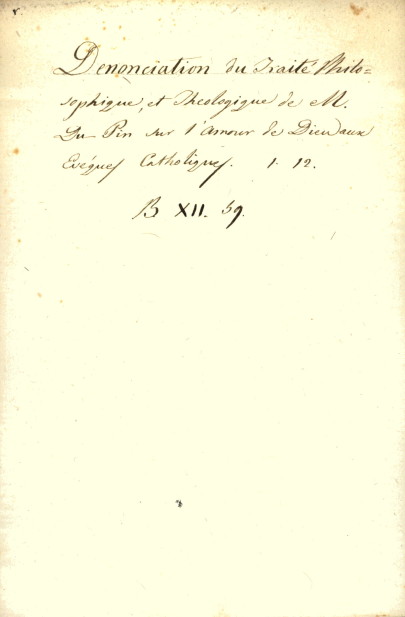 Denonciation du Traité Philo=
sophique, et Theologique de M.
Du Pin sur l'Amour de Dieu aux
Evéques Catholiques. 1. 12.
B XII. 59.